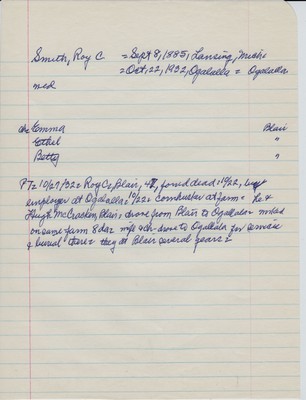 Smith, Roy C = Sept 8, 1885, Lansing, Mich=
= Oct, 22, 1932, Ogalalla = Ogalalla
med
ch= Emma Blair
Ethel "
Betty "
PT= 10/27/32= Roy C, Blair, 47, found dead= 10/22, by
employer at Ogalalla= 10/22= cornhusker at farm= he &
Hugh McCracken, Blair= drove from Blair to Ogallala=
on same farm 8 da= wife & ch= drove to Ogallala for service
& burial there= they at Blair several years=